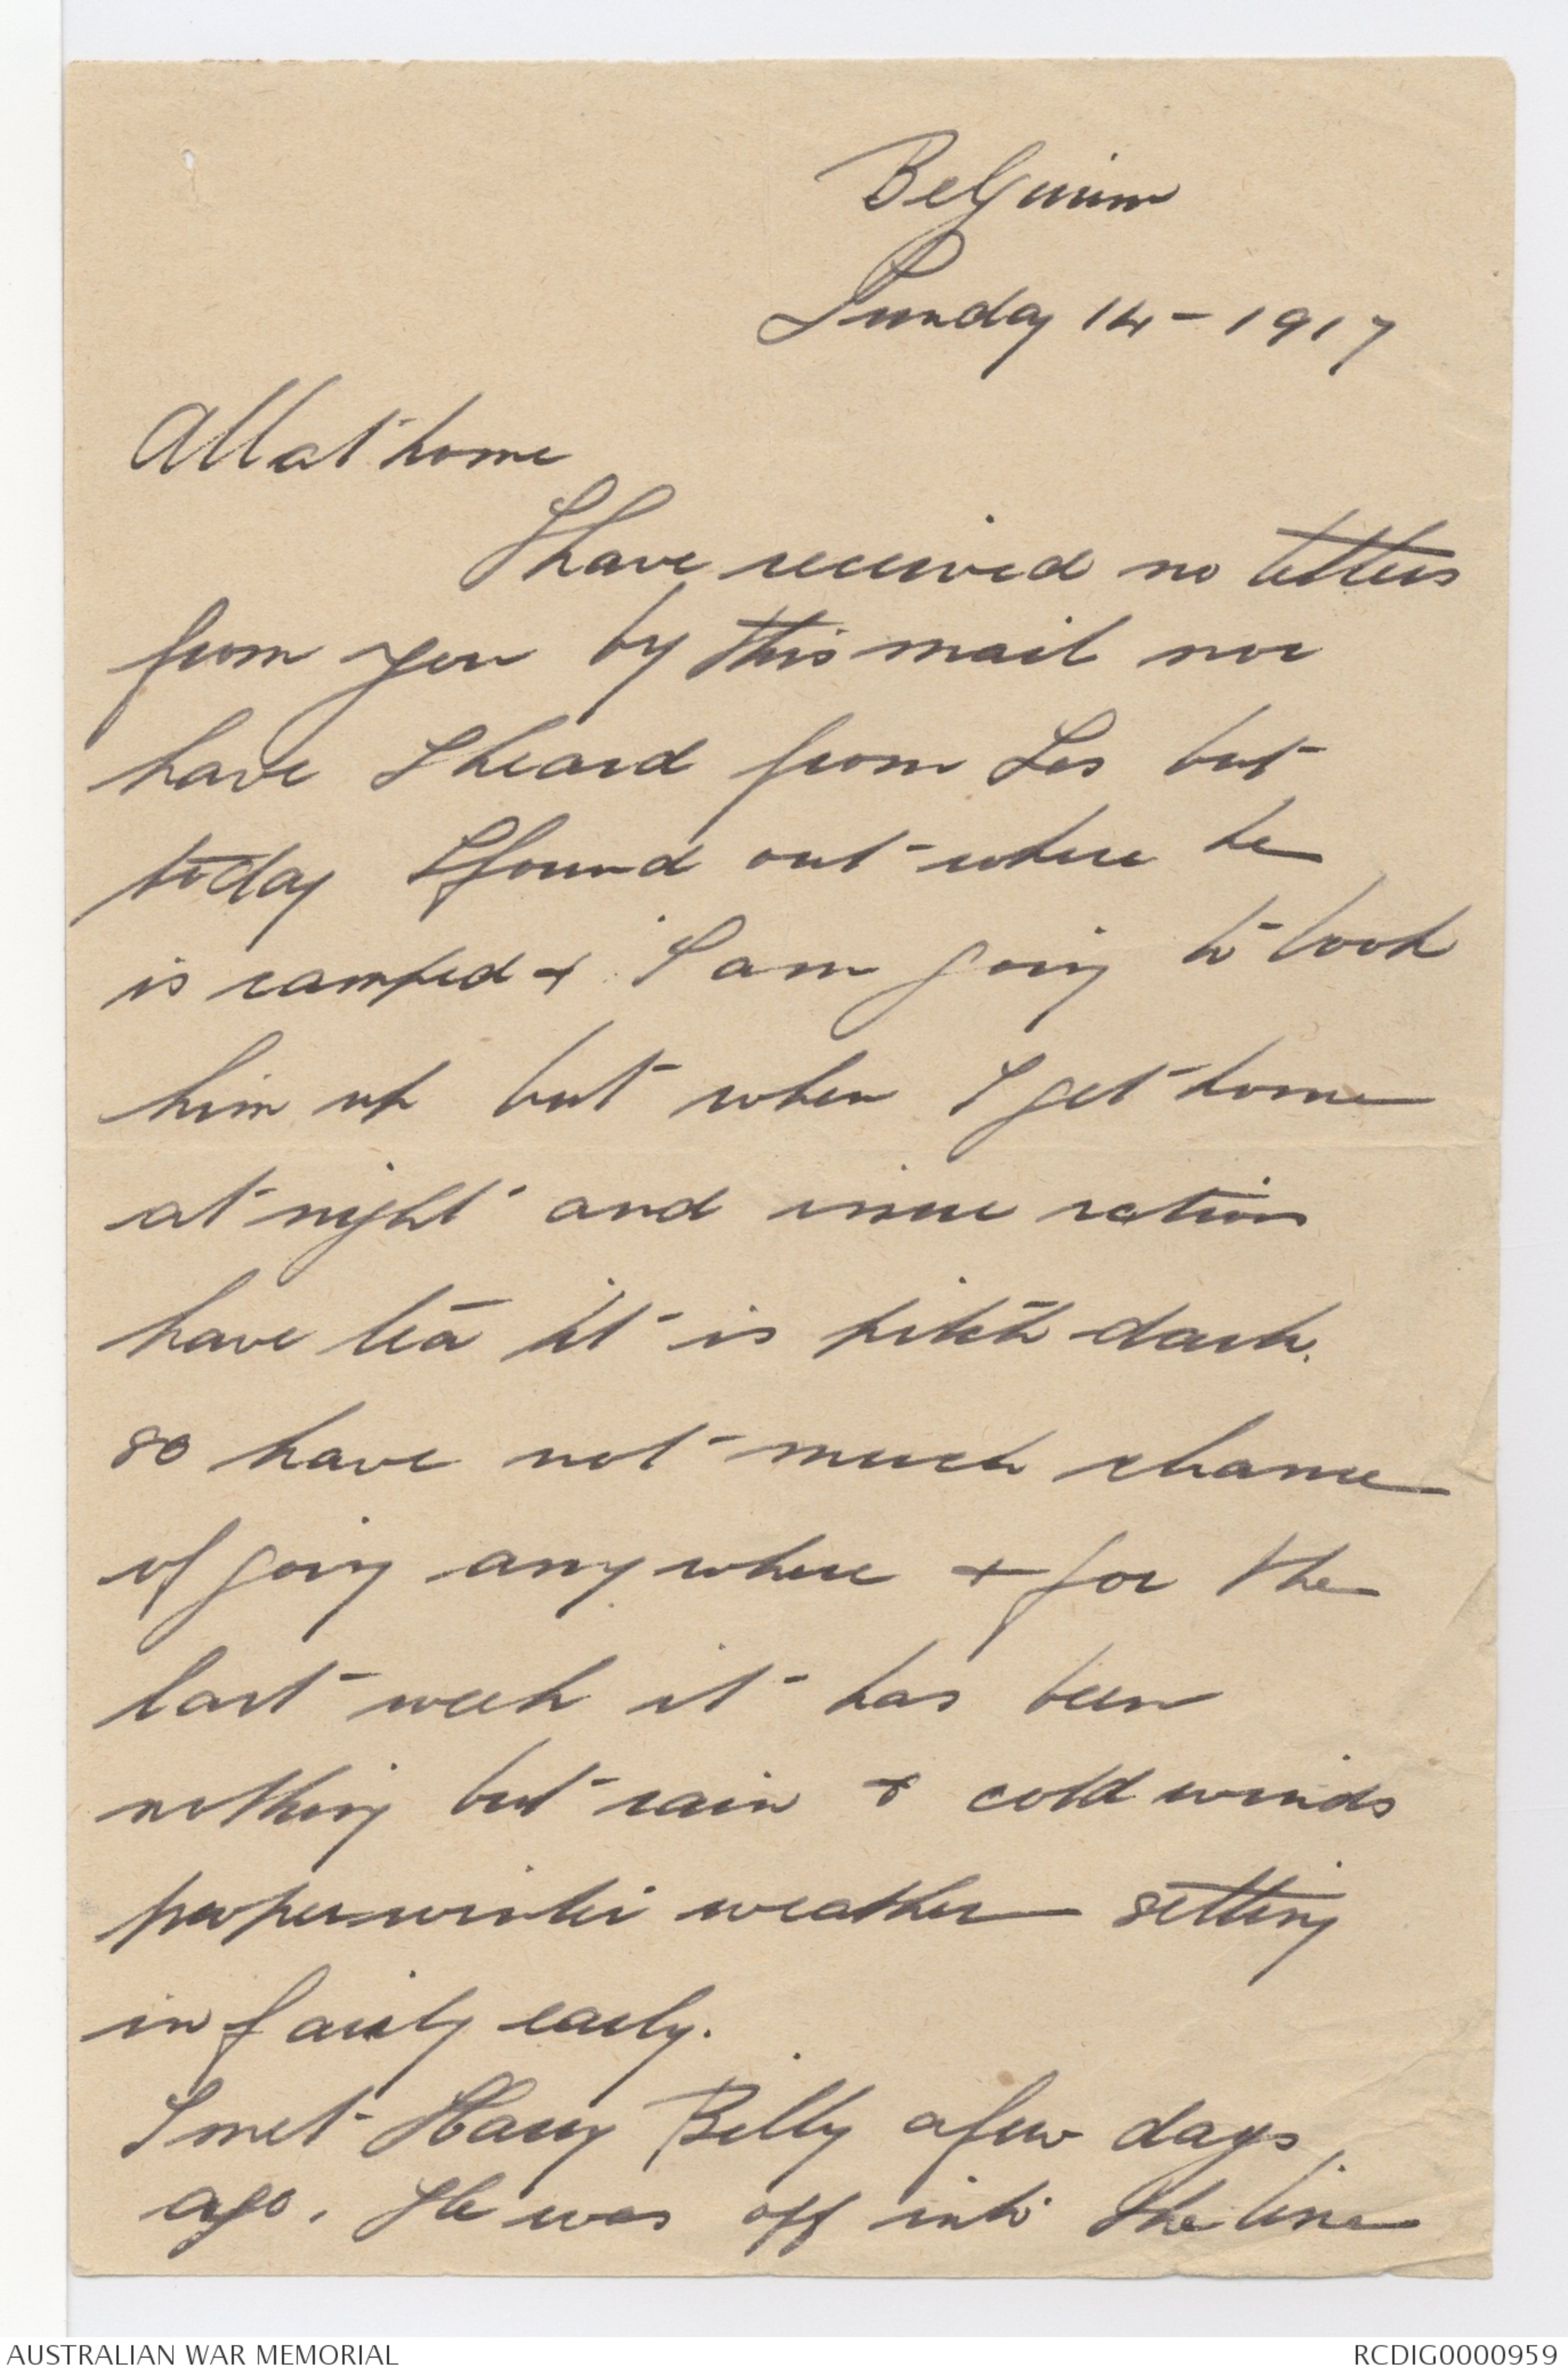 Belgium
Sunday 14 - 1917
All at home
I have received no letters
from you by this mail nor
have I heard from Les but
today I found out where he
is camped & I am going to look
him up but when I get home
at night and issue rations
have tea it is pitch dark.
so have not much chance
of going anywhere & for the
last week it has been
nothing but rain & cold winds
proper winter weather setting
in fairly early.
I met Harry Billy a few days
ago. He was off into the line
AUSTRALIAN WAR MEMORIAL
RCDIG0000959